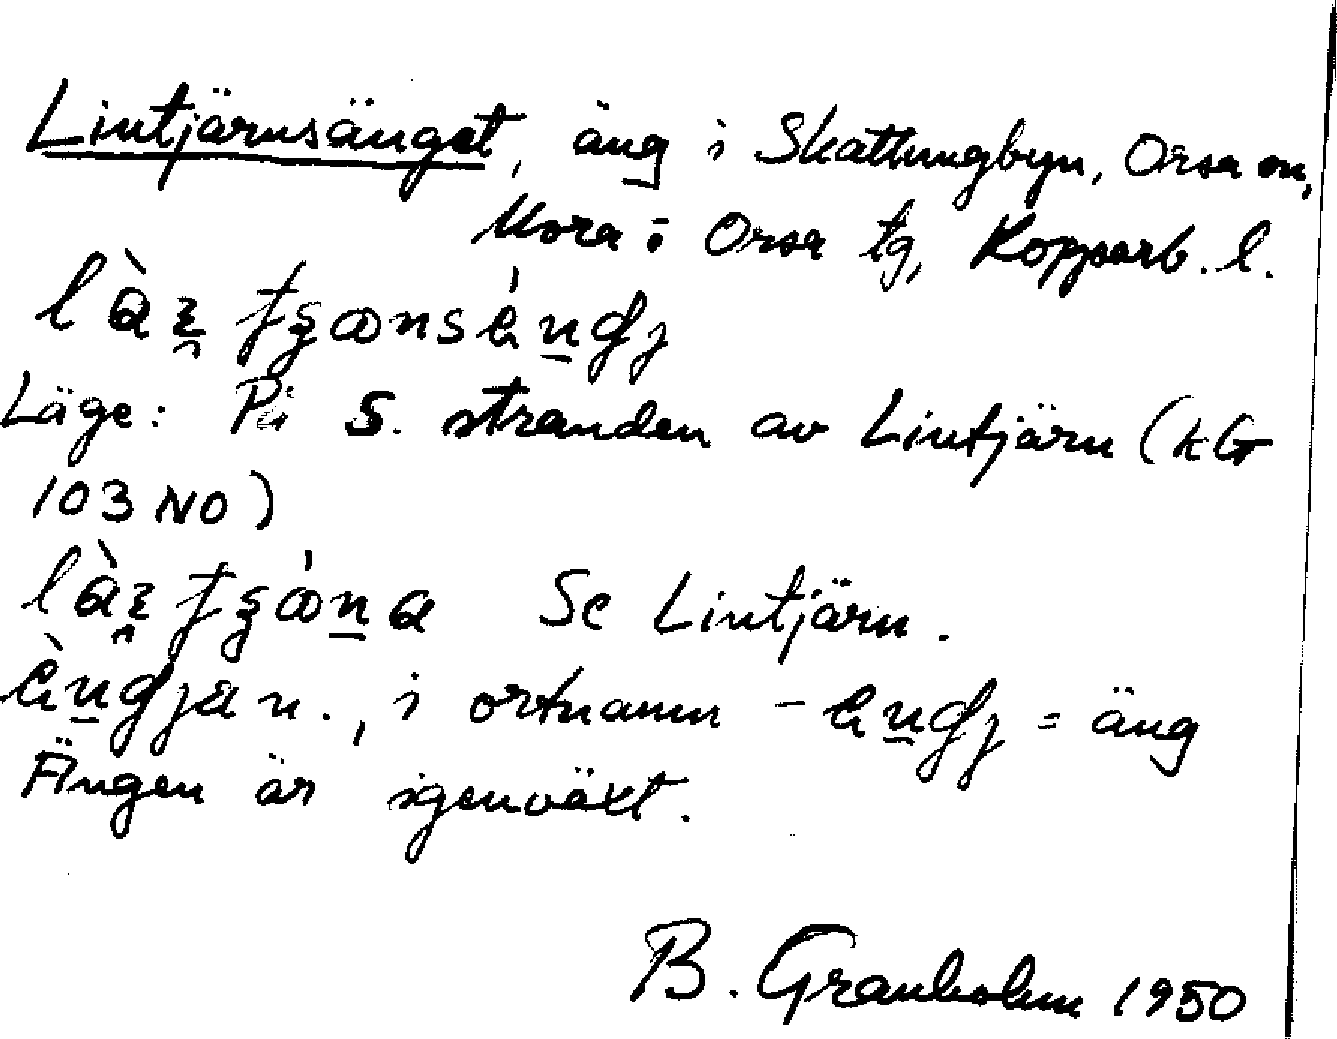 Lintjärnsänget, äng i Skattungbyn, Orsa sn,
Mora o Orsa tg, Kopparb. l.
Läge: På S. stranden av Lintjärn (kG
103 NO)
Se Lintjärn.
n., i ortnamn - = äng
Ängen är igenväxt.
B. Granholm 1950